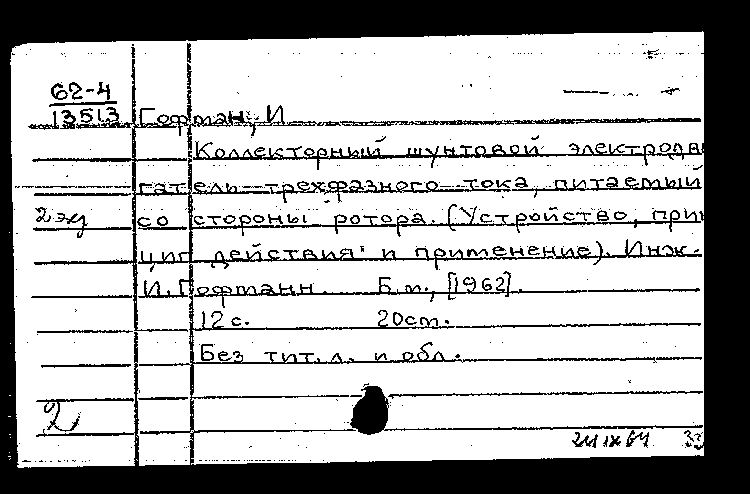 62-4
13513 Гофман, И
Коллекторный шунтовой электродви
гатель трехфазного тока, питаемый
2 экз со стороны ротора. (Устройство, прин
цип действия и применение). Инж.
И. Гофманн. Б.м., [1962].
12 с. 20см.
Без тит. л. и обл.
2
24 IX 64 33